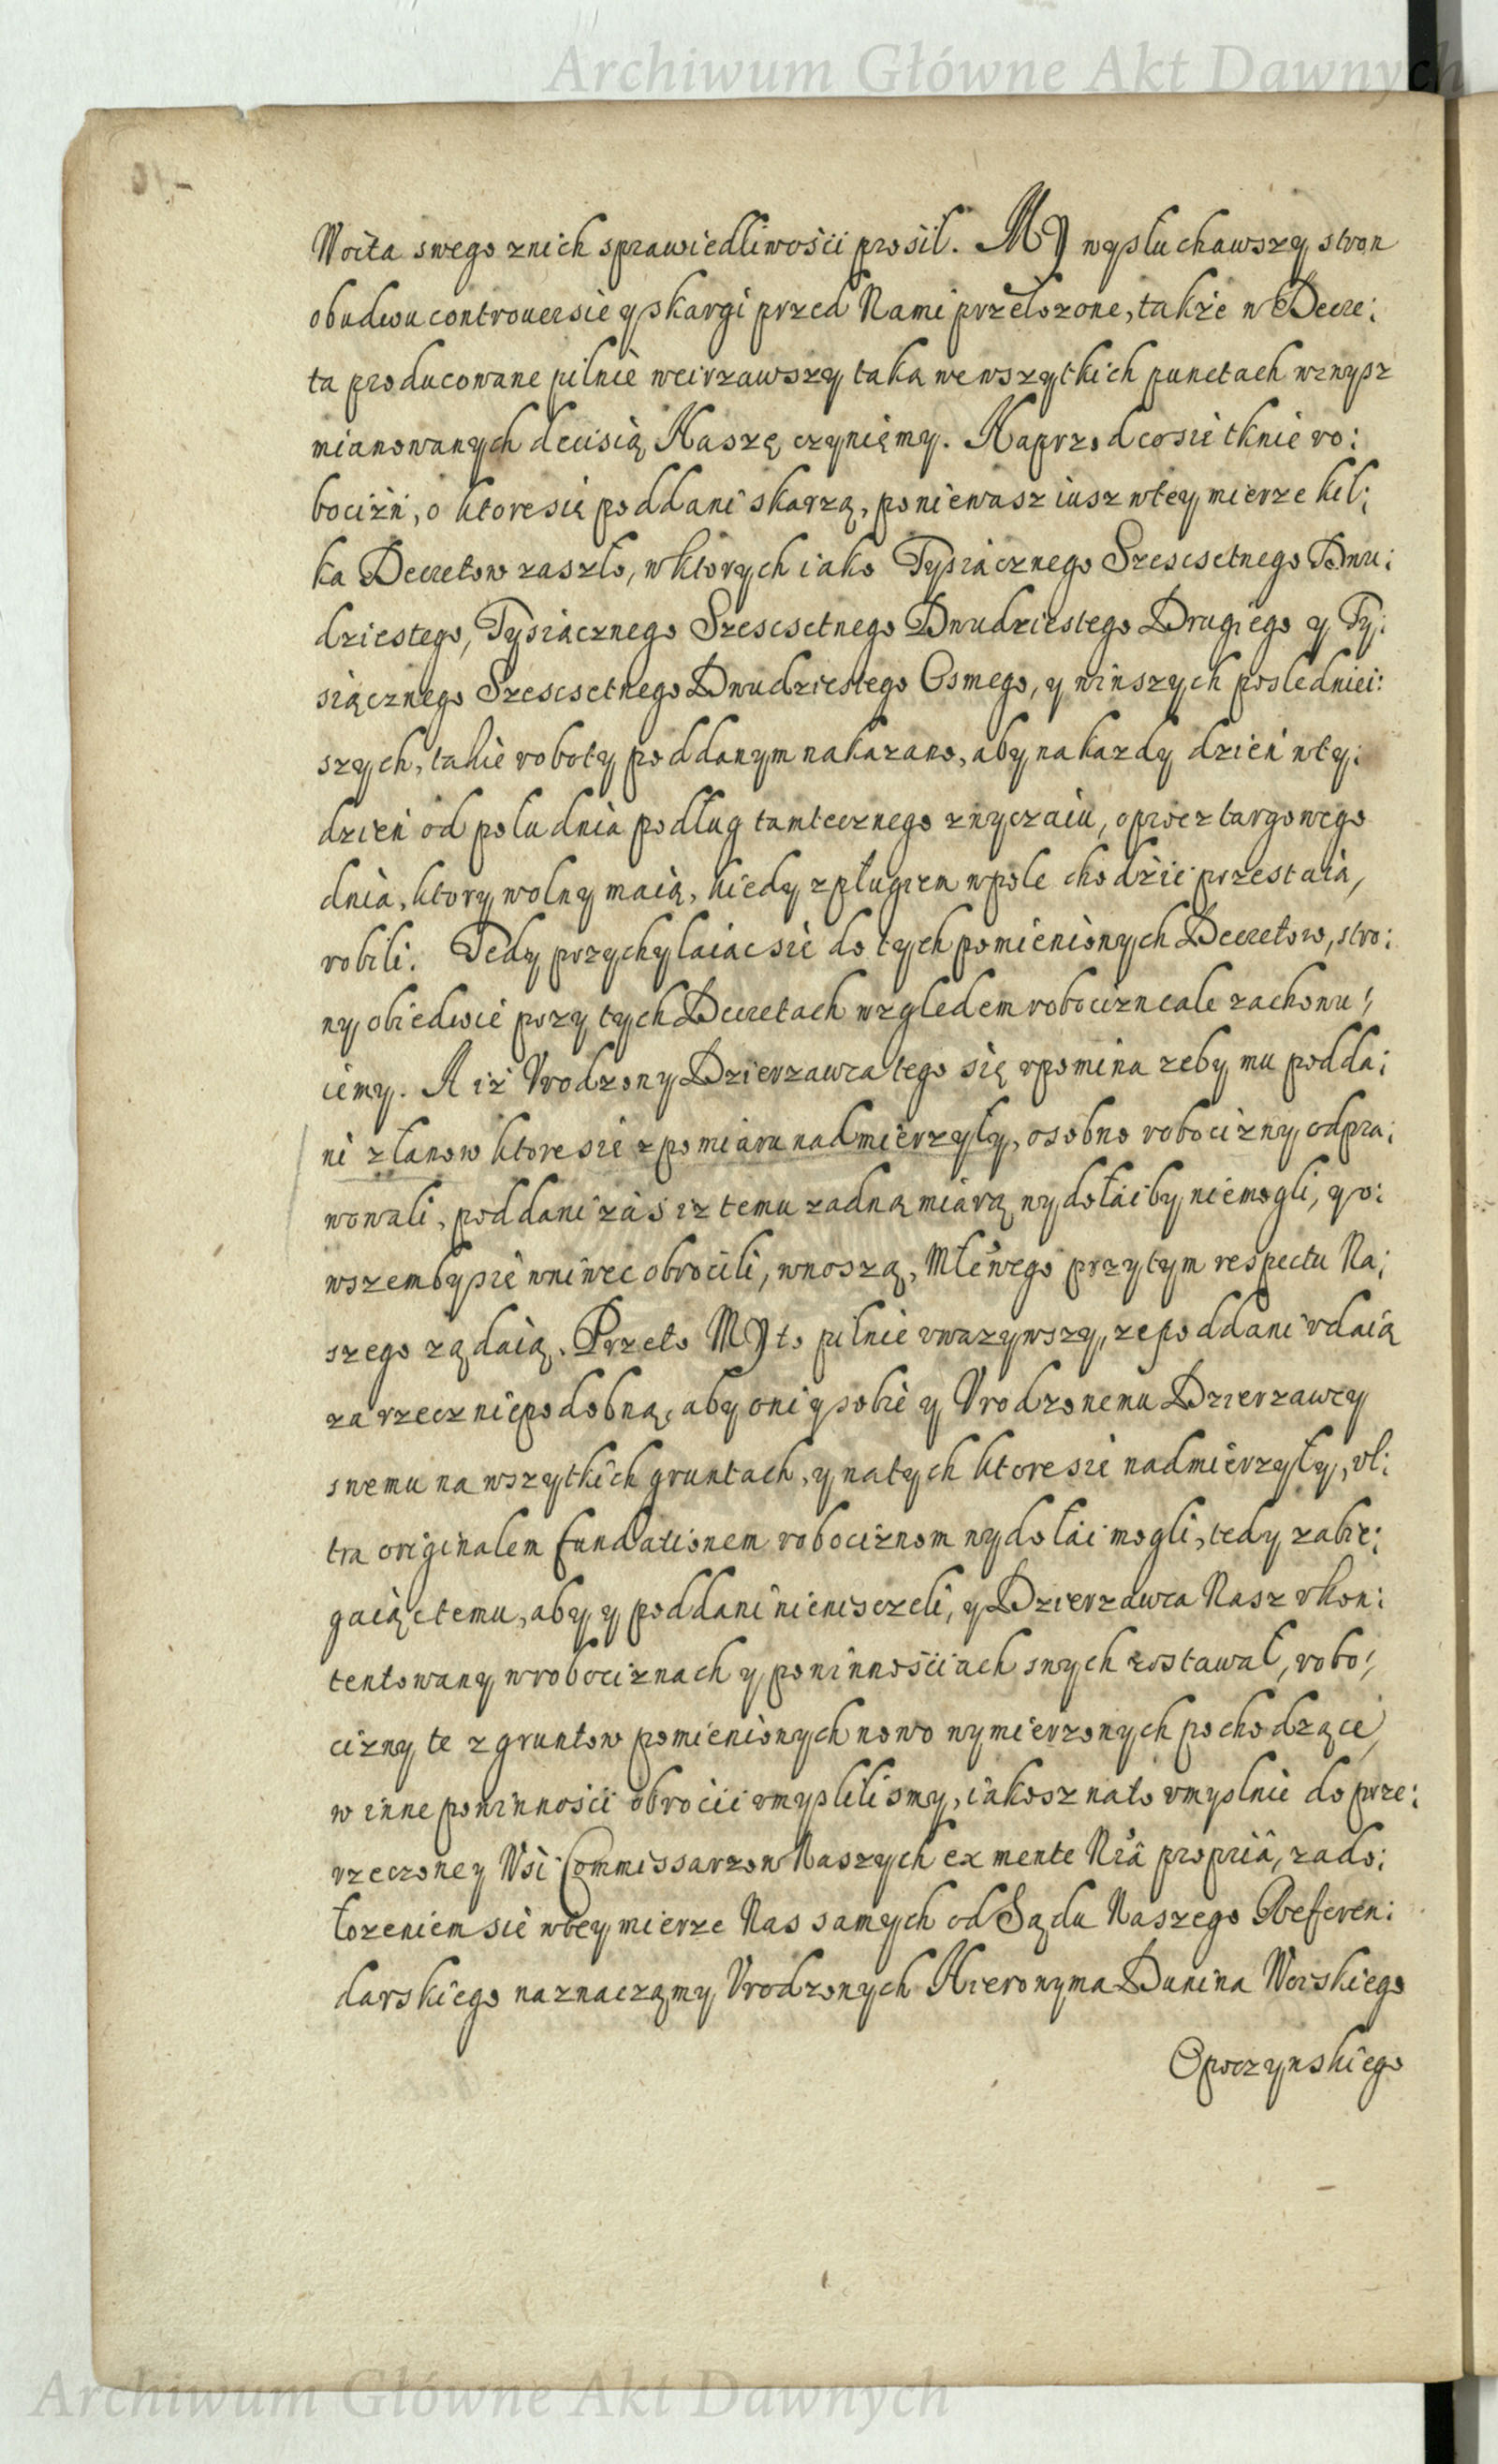 Archiwum Główne Akt Dawnych
Woita swego znich sprawiedliwości prosił. MY wysłuchawszy stron
obudwu controuersie y skargi przed Nami przełozone, także w Decre:
ta producowane pilnie weirzawszy taką we wszytkich punctach wzwysz
mianowanych decisią Naszę czyniemy. Naprzod co sie tknie ro:
bocizń, o ktore się poddani skarzą, poniewasz iusz wtey mierze kil:
ka Decretow zaszło, w ktorych iako Tysiącznego Szescsetnego Dwu:
dziestego, Tysiącznego Szescsetnego Dwudziestego Drugiego y Ty:
siącznego Szescsetnego Dwudziestego Osmego, y winszych posledniei:
szych, takie roboty poddanym nakazano, aby na kazdy dzień w ty:
dzień od południa podług tamtecznego zwyczaiu, oprocz targowego
dnia, ktory wolny maią, kiedy z pługiem w pole chodzić przestaią,
robili. Tedy przychylaiac sie do tych pomienionych Decretow, stro:
ny obiedwie przy tych Decretach względem robocizn cale zachowu:
iemy. A iż Vrodzony Dzierzawca tego się vpomina zeby mu podda:
ni z łanow ktore sie z pomiaru nadmierzyły, osobno robocizny odpra:
wowali, poddani záś iz temu zadną miarą wydołáć by niemogli, y o:
wszem by sie wniwec obrocili, wnoszą, Młśćwego przytym respectu Na:
szego ządaią. Przeto MY to pilnie vwazywszy, ze poddani vdaią
za rzecz niepodobną, aby oni y sobie y Vrodzonemu Dzierzawcy
swemu na wszytkich gruntach, y natych ktore sie nadmierzyły, vl:
tra originalem fundationem robociznom wydołać mogli, tedy zabie:
gaiąc temu, aby y poddani nieniszczeli, y Dzierzawca Nasz vkon:
tentowany w robociznach y powinnościach swych zostawał, robo:
cizny te z gruntow pomienionych nowo wymierzonych pochodzące,
w inne powinności obrocić vmyslili smy, iakosz na to vmyslnie do prze:
rzeczoney Wsi Commissarzow Naszych ex mente Nrâ propriâ, zado:
łozeniem sie wtey mierze Nas samych od Sądu Naszego Referen:
darskiego naznaczamy Vrodzonych Hieronyma Dunina Worskiego
Opoczynskiego
Archiwum Główne Akt Dawnych